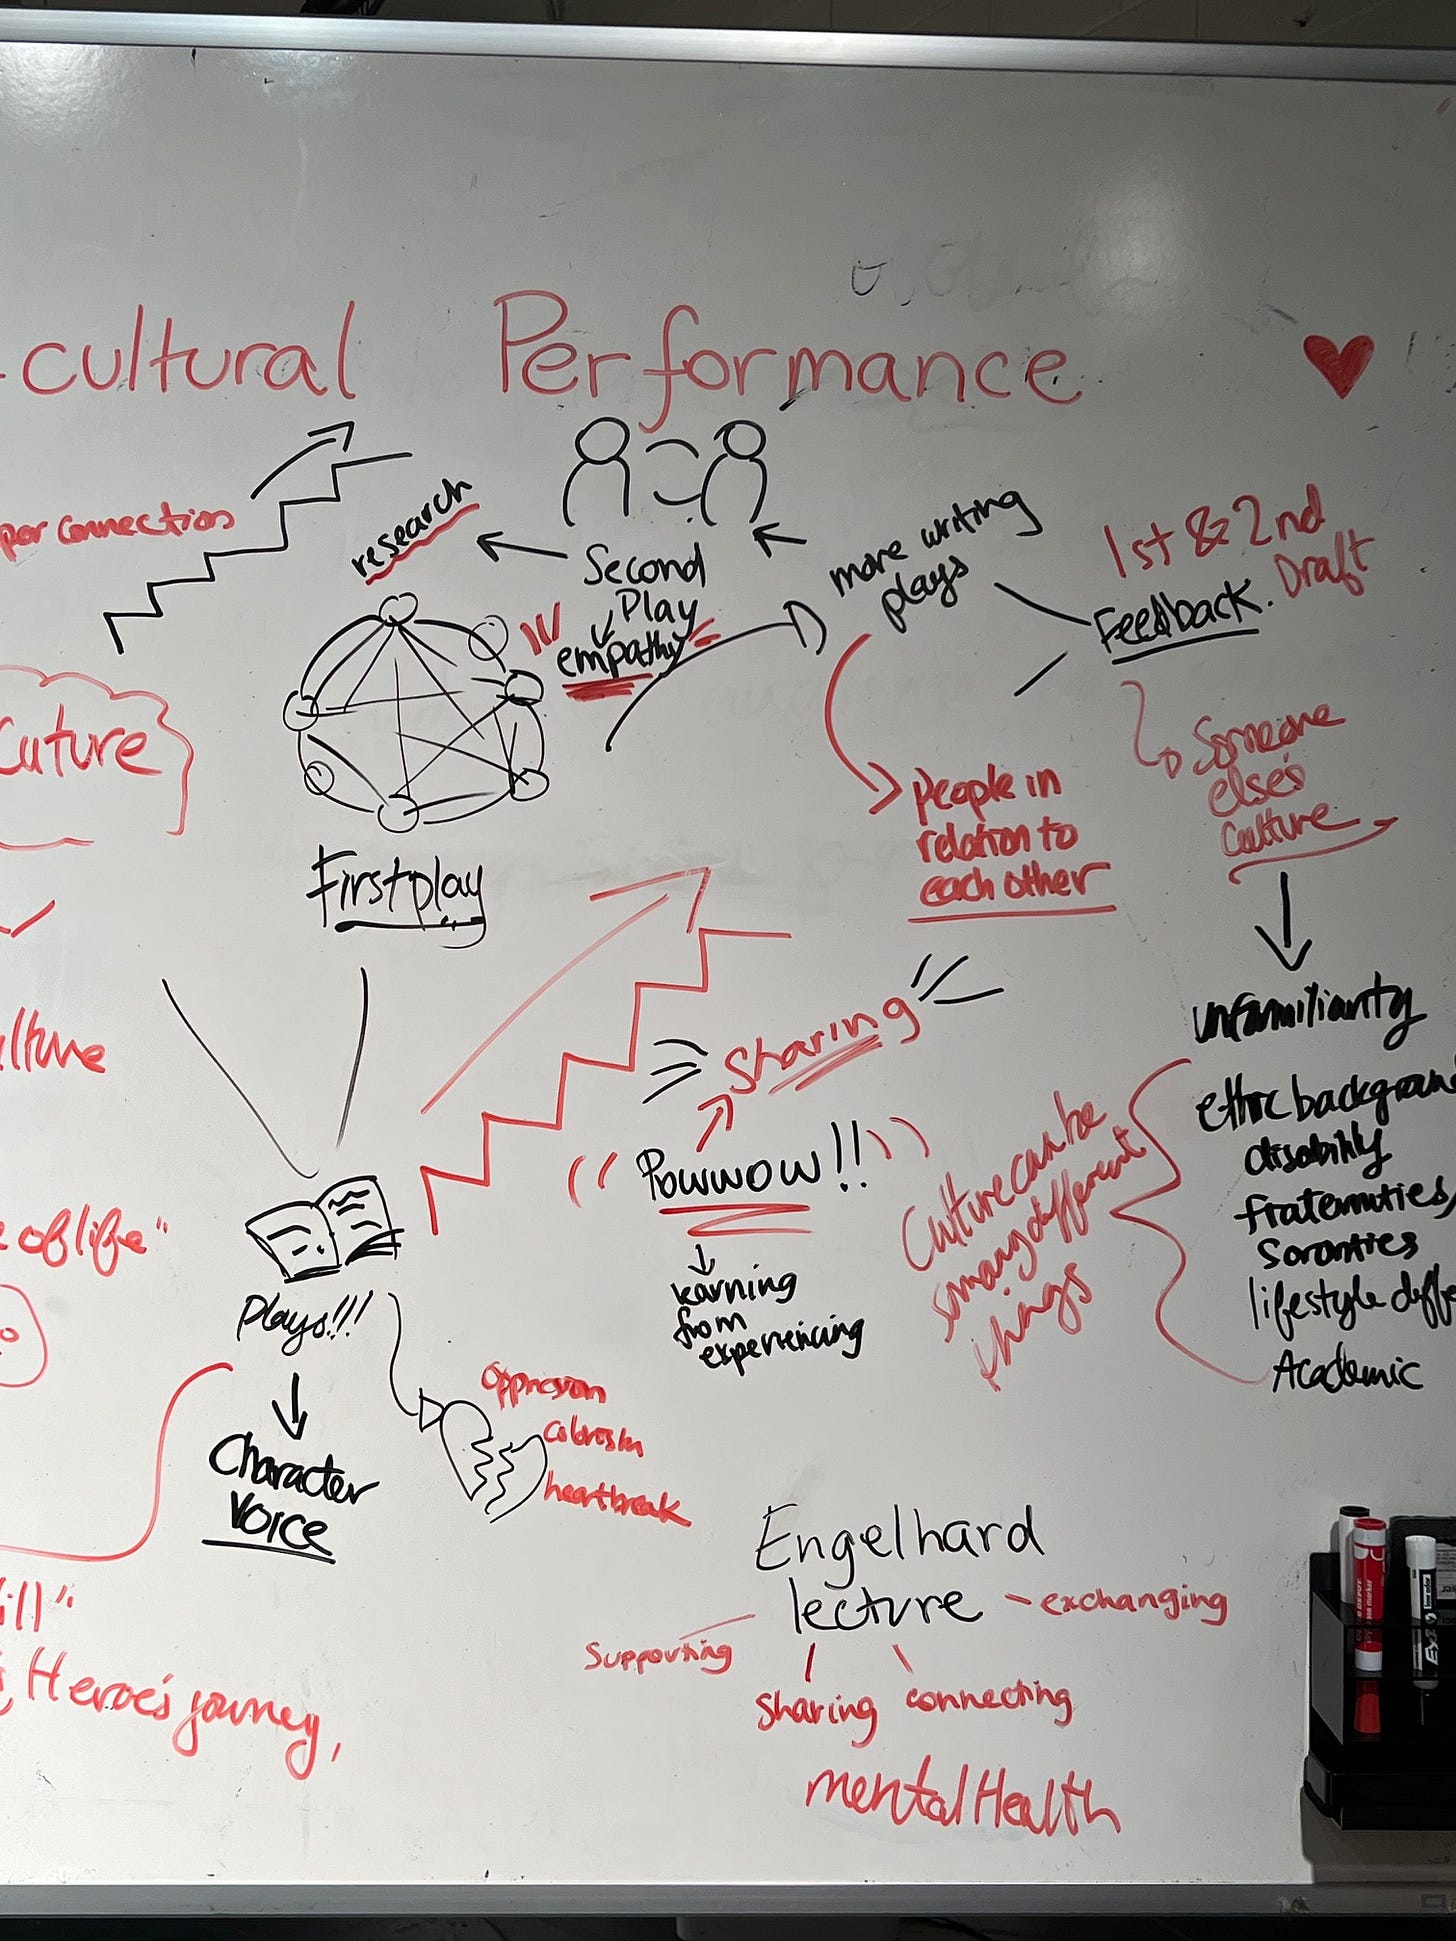 cultural Performance
per connection
research
Second
Play
empathy
more writing
plays
1st & 2nd
Draft
Feedback.
Someone
else's
Culture
Cuture
People in
relation to
each other
First play
unfamilianty
ethnic background
disability
fraternities,
Sororities
lifestyle diffe
Academic
Culture can be
so many different
things
Sharing
Powwow!!
learning
from
experiencing
lture
e of life"
Plays!!!
Character
Voice
oppression
colorism
heartbreak
Engelhard
lecture
exchanging
Supporting
Sharing
connecting
mental Health
ill"
Heroe's journey,